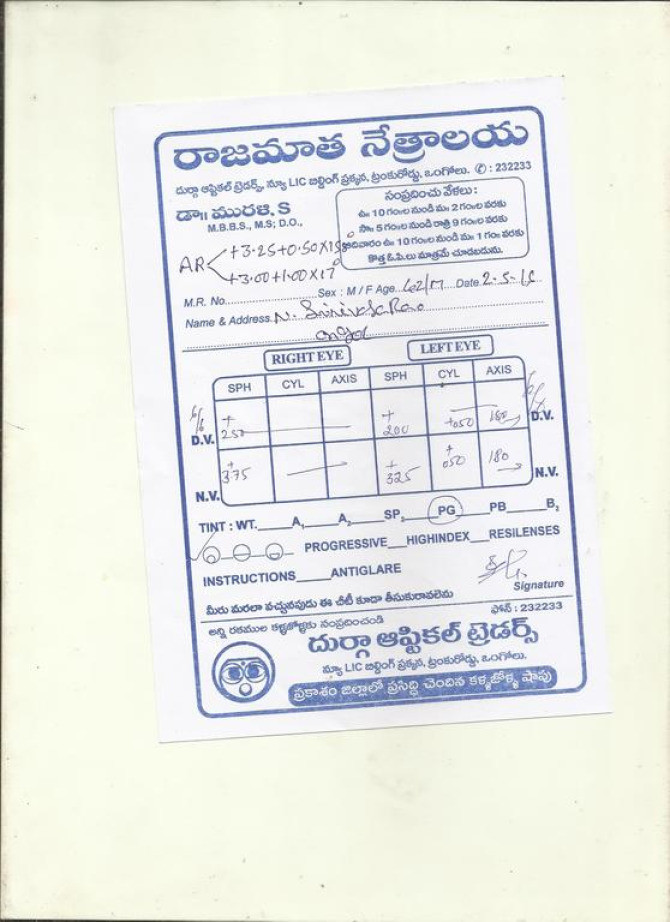 రాజమాత నేత్రాలయ
దుర్గా ఆప్టికల్ ట్రేడర్స్, న్యూ LIC బిల్డింగ్ ప్రక్కన, ట్రంకురోడ్డు, ఒంగోలు. ✆ : 232233
డా॥ మురళి. S
M.B.B.S., M.S; D.O.,
సంప్రదించు వేళలు :
ఉ॥ 10 గం॥ల నుండి మ॥ 2 గం॥ల వరకు
సా॥ 5 గం॥ల నుండి రాత్రి 9 గం॥ల వరకు
ఆదివారం ఉ॥ 10 గం॥ల నుండి మ॥ 1 గం॥ వరకు
కొత్త ఓ.పి.లు మాత్రమే చూడబడును.
AR +3.25+0.50X15
+3.00+1.00X17
M.R. No. Sex : M / F Age 62/M Date 2-5-16
Name & Address N. Srinivasa Rao
RIGHT EYE LEFT EYE
SPH CYL AXIS SPH CYL AXIS
6/6 D.V. +250 +200 +050 180 D.V.
N.V. +375 +325 +050 180 N.V.
TINT : WT. A1 A2 SP2 PG PB B2
PROGRESSIVE HIGHINDEX RESILENSES
INSTRUCTIONS ANTIGLARE
Signature
మీరు మరలా వచ్చునపుడు ఈ చీటీ కూడా తీసుకురావలెను
అన్ని రకముల కళ్ళజోళ్ళకు సంప్రదించండి ఫోన్ : 232233
దుర్గా ఆప్టికల్ ట్రేడర్స్
న్యూ LIC బిల్డింగ్ ప్రక్కన, ట్రంకురోడ్డు, ఒంగోలు.
ప్రకాశం జిల్లాలో ప్రసిద్ధి చెందిన కళ్ళజోళ్ళ షాపు